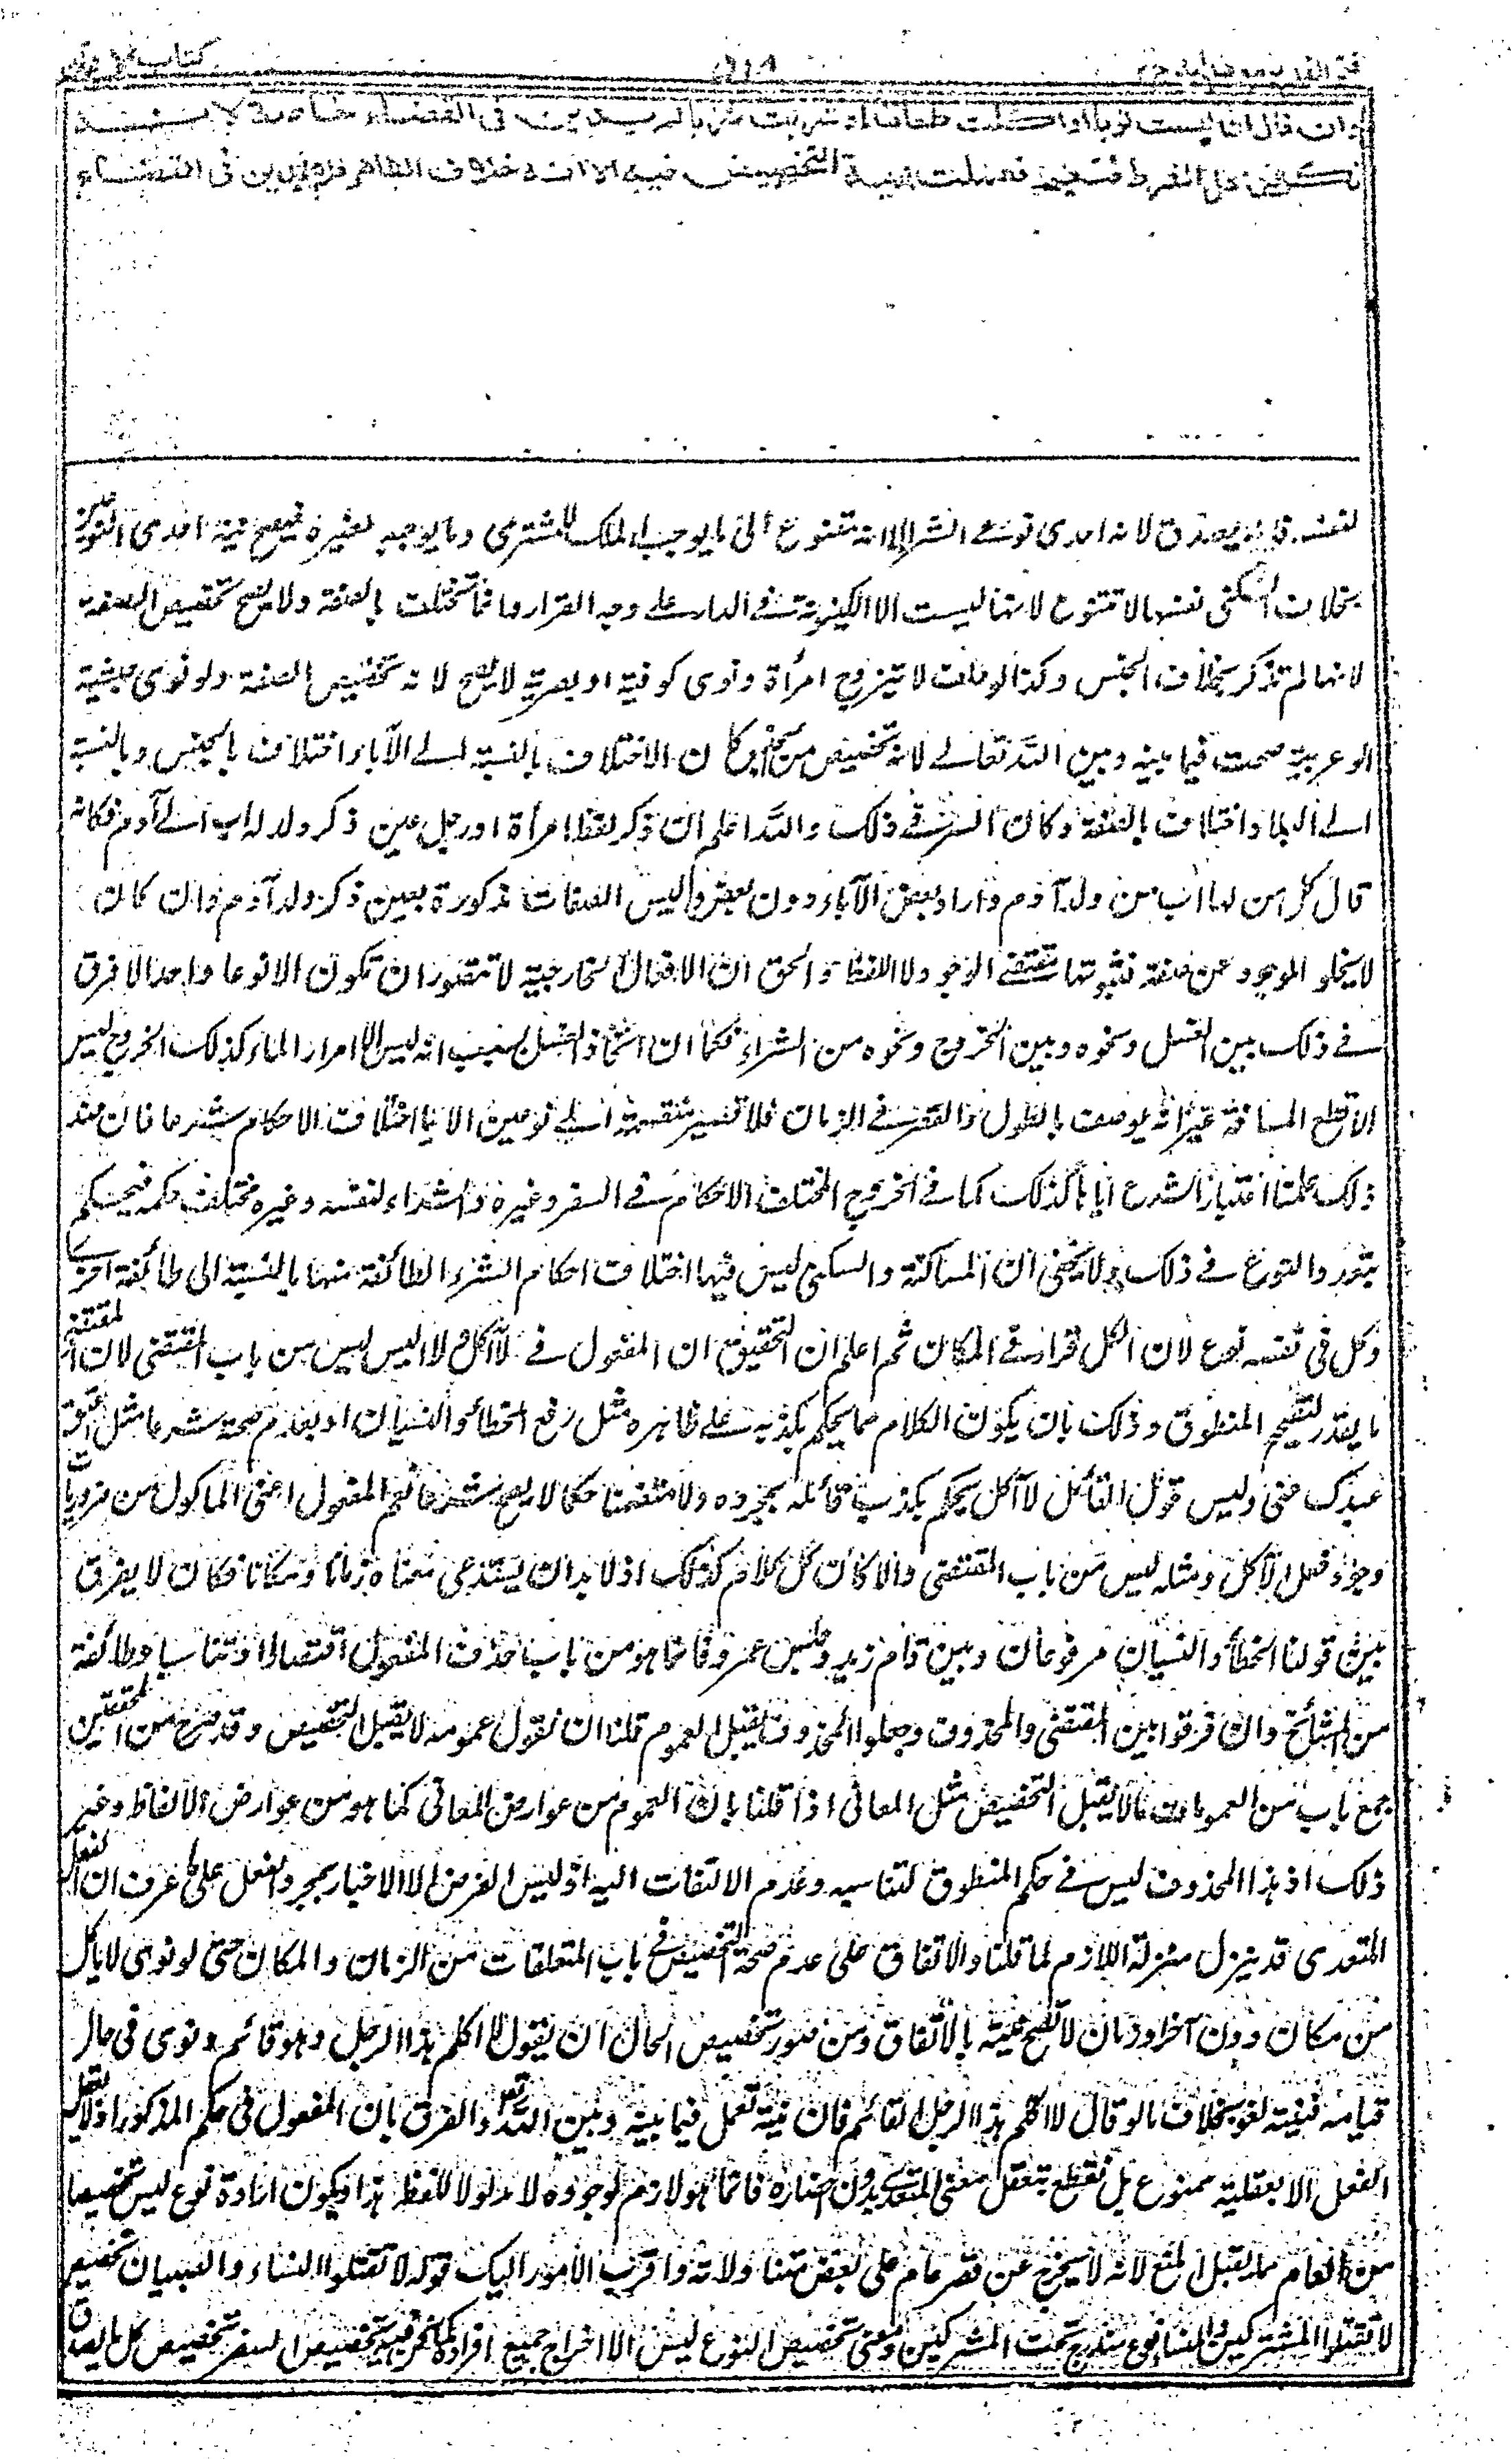 فتح القدير مع هدايه ج ٢
كتاب الايمان
وان قال ان لبست ثوبا او اكلت طعاما او شربت شرابا لم يدين في القضاء خاصة لانه
نكرة في محل الشرط فتعم فعملت نية التخصيص فيه الا انه خلاف الظاهر فلا يدين في القضاء
لنفسه فانه يصدق لانه احدى نوعى الشراء لانه متنوع الى ما يوجب الملك للمشترى وما يوجبه لغيره فيصح نية احدى النوعين
بخلاف السكنى نفسها لا تتنوع لانها ليست الا الكينونة فى الدار على وجه القرار وانما تختلف بالصفة ولا يصح تخصيص الصفة
لانها لم تذكر بخلاف الجنس وكذا لو حلف لا يتزوج امرأة ونوى كوفية او بصرية لا يصح لانه تخصيص الصفة ولو نوى حبشية
او عربية صحت فيما بينه وبين الله تعالى لانه تخصيص من الجنس كان الاختلاف بالنسبة الى الآباء اختلاف بالجنس وبالنسبة
الى البلاد اختلاف بالصفة وكان السر فى ذلك والله اعلم ان ذكر لفظ امرأة او رجل عين ذكر ولد له اب الى آدم فكانه
قال كل من لها اب من ولد آدم واراد بعض الآباء دون بعض وليس الصفات مذكورة بعين ذكر ولد آدم وان كان
لا يخلو الموجود عن صفة فثبوتها مقتضى الوجود لا اللفظ والحق ان الافعال الخارجية لا تتصور ان تكون الا نوعا واحدا لا فرق
فى ذلك بين الغسل ونحوه وبين الخروج ونحوه من الشراء فكما ان اتحاذ الغسل بسبب انه ليس الا امرار الماء كذلك الخروج ليس
الا قطع المسافة غير انه يوصف بالطول والقصر فى الزمان فلا تصير منقسمة الى نوعين الا باختلاف الاحكام شرعا فان عند
ذلك علمنا اعتبار الشرع اياها كذلك كما فى الخروج المختلف الاحكام فى السفر وغيره والشراء لنفسه وغيره مختلف حكمه فيحكم
بتعدد النوع فى ذلك ولا يخفى ان المساكنة والسكنى ليس فيها اختلاف احكام الشرع لطائفة منها بالنسبة الى طائفة اخرى
وكل فى نفسه نوع لان الكل قرار فى المكان ثم اعلم ان التحقيق ان المفعول فى لا آكل ولا البس ليس من باب المقتضى لان المقتضى
ما يقدر لتصحيح المنطوق وذلك بان يكون الكلام مما يحكم بكذبه على ظاهره مثل رفع الخطأ والنسيان او بعدم صحة شرعا مثل اعتق
عبدك عنى وليس قول القائل لا آكل يحكم بكذب قائله بمجرده ولا متضمنا حكما لا يصح شرعا نعم المفعول اعنى المأكول من ضروريات
وجود فعل الآكل ومثله ليس من باب المقتضى والا كان كل كلام كذلك اذ لا بد ان يستدعى معناه زمانا ومكانا فكان لا يفرق
بين قولنا الخطأ والنسيان مرفوعان وبين قام زيد وجلس عمرو فانما هو من باب حذف المفعول اقتصارا او تناسيا وطائفة
من المشائخ وان فرقوا بين المقتضى والمحذوف وجعلوا المحذوف يقبل العموم قلنا ان نقول عمومه لا يقبل التخصيص وقد صرح من المحققين
جمع بان من العمومات ما لا يقبل التخصيص مثل المعانى اذا قلنا بان العموم من عوارض المعانى كما هو من عوارض الالفاظ وغير
ذلك اذ هذا المحذوف ليس فى حكم المنطوق لتناسيه وعدم الالتفات اليه اذ ليس الغرض الا الاخبار بمجرد الفعل على ما عرف ان الفعل
المتعدى قد ينزل منزلة اللازم لما قلنا والاتفاق على عدم صحة التخصيص فى باب المتعلقات من الزمان والمكان حتى لو نوى لا ياكل
من مكان دون آخر او زمان لا تصح نيته بالاتفاق ومن صور تخصيص الحال ان يقول لا اكلم هذا الرجل وهو قائم ونوى فى حال
قيامه فنيته لغو بخلاف ما لو قال لا اكلم هذا الرجل القائم فان نيته تعمل فيما بينه وبين الله تعالى والفرق بان المفعول فى حكم المذكور اذ لا يعقل
الفعل الا بعقليته ممنوع بل نقطع بتعقل معنى المتعدى بدون اخطاره فانما هو لازم لوجوده لا مدلولا للفظ هذا ويكون ارادة نوع ليس تخصيصا
من العام مما يقبل المنع لانه لا يخرج عن قصر عام على بعض متناولاته واقرب الامور اليك قوله لا تقتلوا النساء والصبيان تخصيص
لا تقتلوا المشركين والنساء نوع مندرج تحت المشركين ومعنى تخصيص النوع ليس الا اخراج جميع افراده كما نحن فيه تخصيص السفر تخصيص كل ما يصدق